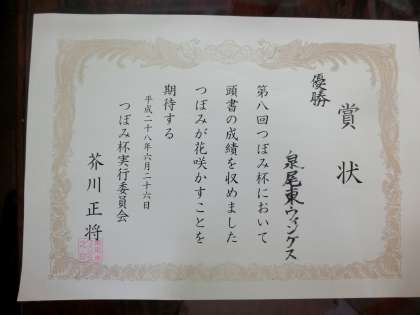 賞状
優勝
泉尾東ウィングス
第八回つぼみ杯において
頭書の成績を収めました
つぼみが花咲かすことを
期待する
平成二十八年六月二十六日
つぼみ杯実行委員会
芥川正将